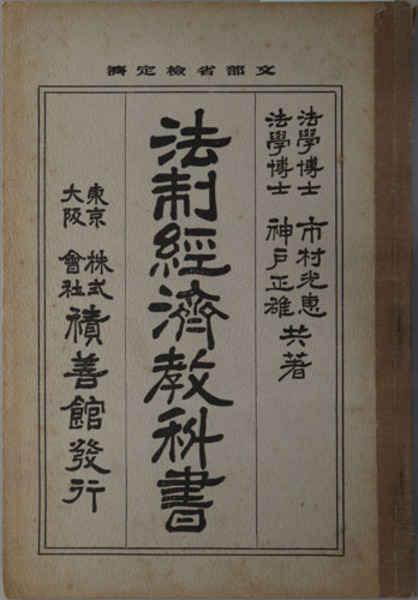 文部省檢定濟
法學博士 市村光惠
法學博士 神戸正雄 共著
法制經濟教科書
東京 大阪 株式會社 積善館發行